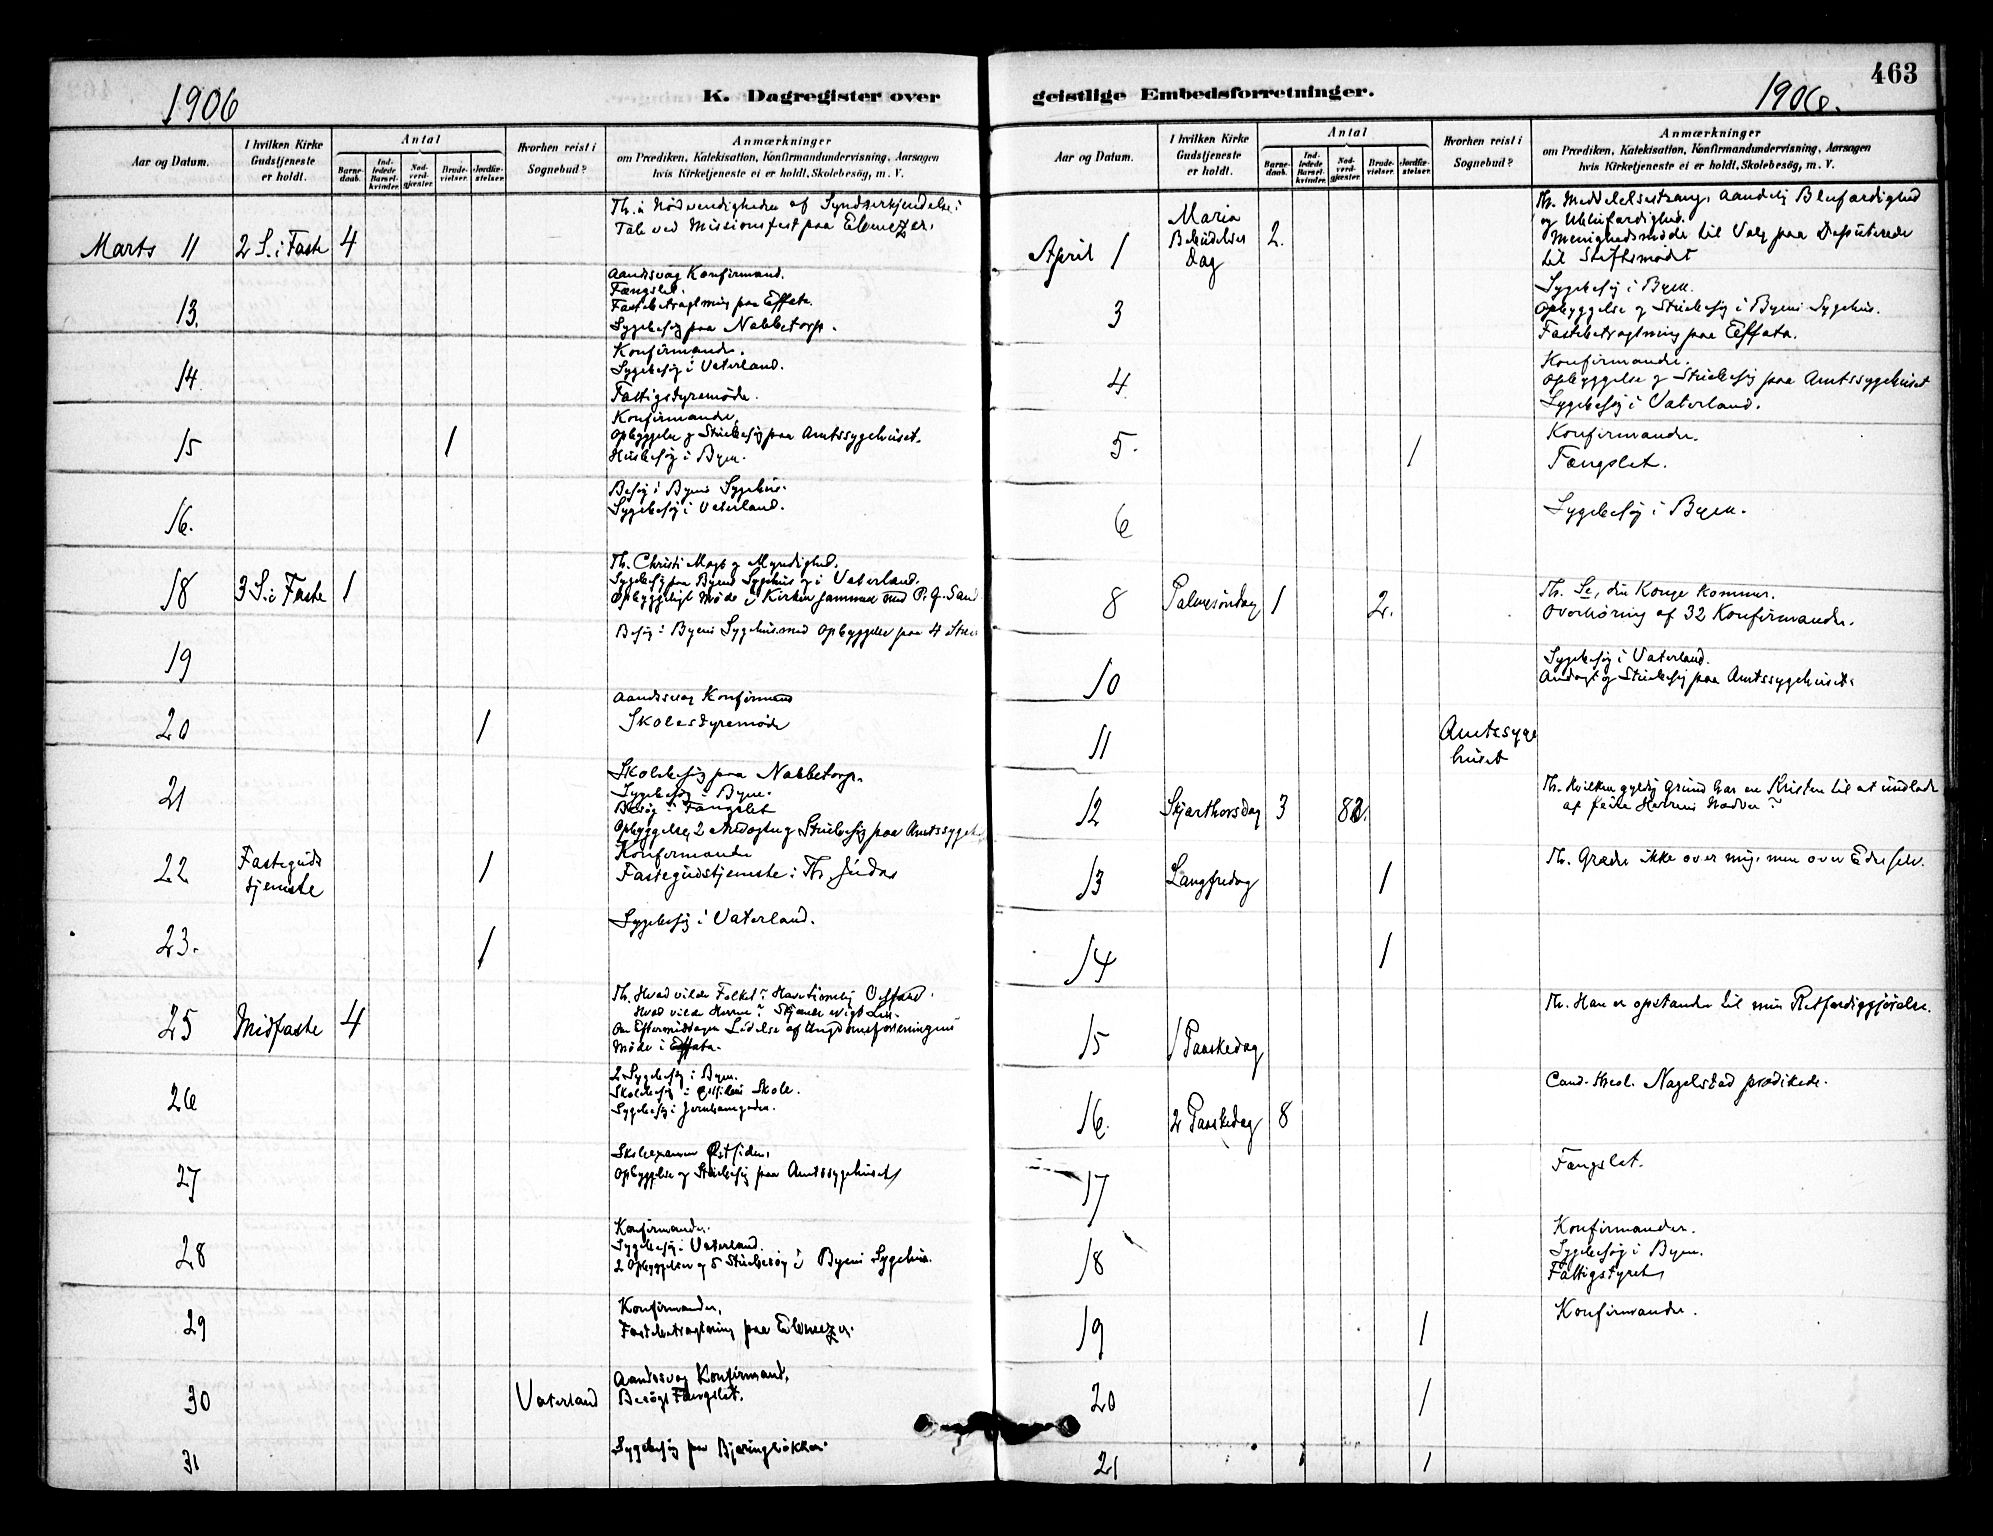 1906
K. Dagregister over
Aar og Datum.
I hvilken Kirke Gudstjeneste er holdt.
Antal
Barnedaab.
Indledede Barselkvinder.
Nadverdgjæster.
Brudevielser.
Jordfæstelser.
Hvorhen reist i Sognebud?
Anmærkninger
om Prædiken, Katekisation, Konfirmandundervisning, Aarsagen
hvis Kirketjeneste ei er holdt, Skolebesög, m. V.
Marts 11 2 S. i Faste 4
Th. Nödvendigheden af Syndserkjendelse:
Tale ved Missionsfest paa Ebenezer.
13.
Aandssvag Konfirmand.
Fængslet.
Fastebetragtning paa Effata.
Sygebesög paa Nabbetorp.
14
Konfirmander.
Sygebesög i Vaterland.
Fattigstyremöde.
15 1
Konfirmander,
Opbyggelse og Stuebesög paa Amtssygehuset.
Husbesög i Byen.
16.
Besög i Byens Sygehus.
Sygebesög i Vaterland.
18 3 S. i Faste 1
Th. Christi Magt og Myndighed.
Sygebesög paa Byens Sygehus og i Vaterland.
Opbyggeligt Möde i Kirken sammen med P. G. Sand
19
Besög i Byens Sygehus med Opbyggelse paa 4
20 1
Aandssvag Konfirmand
Skolestyremöde
21
Skolebesög paa Nabbetorp.
Sygebesög i Byen.
Besög i Fængslet
Opbyggelse, 2 Andagter og Stuebesög paa Amtssygeh
22 Fastegudstjeneste 1
Konfirmander
Fastegudstjeneste: Th. Judas
23. 1
Sygebesög i Vaterland.
25 Midfaste 4
Th. Hvad vilde Folket?
Hvad vilde Herren? evigt
Om Eftermiddagen Ledelse af Ungdomsforeningens
Möde i Effata.
26
2 Sygebesög i Byen.
Skolebesög i Skole.
Sygebesög i
27
Skoleexamen Östsiden,
Opbyggelse og Stuebesög paa Amtssygehuset
28
Konfirmander.
Sygebesög i Vaterland.
2 Opbyggelser og 5 Stuebesög i Byens Sygehus.
29
Konfirmander,
Fastebetragtning paa Ebenezer.
30 Vaterland
Aandssvag Konfirmand,
Besögt Fængslet.
31
Sygebesög paa
geistlige Embedsforretninger.
1906.
463
Aar og Datum.
I hvilken Kirke Gudstjeneste er holdt.
Antal
Barnedaab.
Indledede Barselkvinder.
Nadverdgjæster.
Brudevielser.
Jordfæstelser.
Hvorhen reist i Sognebud?
Anmærkninger
om Prædiken, Katekisation, Konfirmandundervisning, Aarsagen
hvis Kirketjeneste ei er holdt, Skolebesög, m. V.
April 1 Maria Bebudelses Dag 2.
Th. Meddelelsestrang, Aandelig Blufærdighed
og Ublufærdighed.
Menighedsmöde til Valg paa Deputerede
til Stiftsmödet
3
Sygebesög i Byen.
Opbyggelse og Stuebesög i Byens Sygehus.
Fastebetragtning paa Effata.
4.
Konfirmander.
Opbyggelse og Stuebesög paa Amtssygehuset
Sygebesög i Vaterland.
5. 1
Konfirmander.
Fængslet.
6
Sygebesög i Byen.
8 Palmesöndag 1 2.
Th. Se, din Konge kommer.
Overhöring af 32 Konfirmander.
10
Sygebesög i Vaterland.
Andagt og Stuebesög paa Amtssygehuset.
11 Amtssygehuset
12 Skjærthorsdag 3
Th. Hvilken gyldig Grund har en Kristen til at undlade
at feire Herrens Nadver?
13 Langfredag 1
Th. Græder ikke over mig, men over Eder selv.
14 1
15 1 Paaskedag
Th. Han er opstanden til min Retfærdiggjörelse.
16. 2 Paaskedag 8
Cand. theol. Nagelstad prædikede.
17
Fængslet.
18
Konfirmander.
Sygebesög i Byen.
Fattigstyret
19 1
Konfirmander.
20 1
21 1